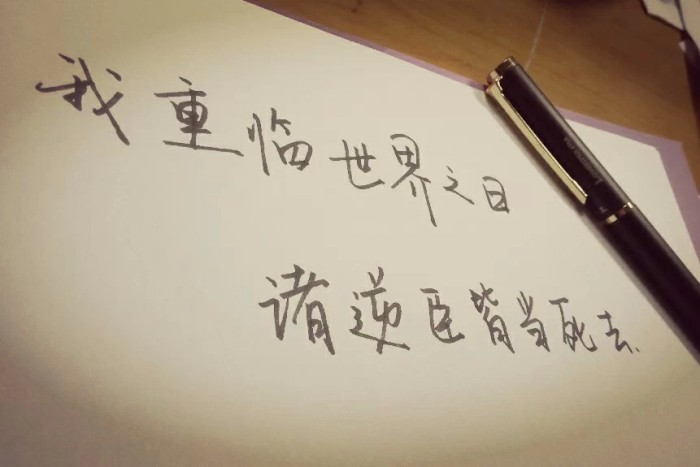 我重临世界之日
诸逆臣皆当死去